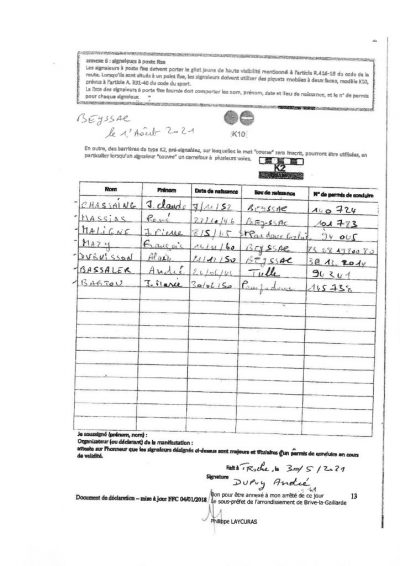 annexe 6 : signaleurs à poste fixe
Les signaleurs à poste fixe doivent porter le gilet jaune de haute visibilité mentionné à l'article R.416-19 du code de la
route. Lorsqu'ils sont situés à un point fixe, les signaleurs doivent utiliser des piquets mobiles à deux faces, modèle K10,
prévus à l'article A. 331-40 du code du sport.
La liste des signaleurs à poste fixe fournie doit comporter les nom, prénom, date et lieu de naissance, et le n° de permis
pour chaque signaleur.
BEYSSAC
le 1° Août 2021
K10
En outre, des barrières de type K2, pré-signalées, sur lesquelles le mot "course" sera inscrit, pourront être utilisées, en
particulier lorsqu'un signaleur "couvre" un carrefour à plusieurs voies.
K2
Nom Prénom Date de naissance lieu de naissance N° de permis de conduire
CHASSAING J. Claude 7/11/52 BEYSSAC 140 724
MASSIAS René BEYSSAC 101 723
MALIGNE J. Pierre 8/5/45 94 045
MAZY François BEYSSAC
Alain 21/12/50 BEYSSAC
BASSALER André Tulle 94 341
BARTON J. Pierre 30/06/50 Pompadour 145 738
Je soussigné (prénom, nom) :
Organisateur (ou déclarant) de la manifestation :
atteste sur l'honneur que les signaleurs désignés ci-dessus sont majeurs et titulaires d'un permis de conduire en cours
de validité.
Fait à TROCHE, le 30/5/2021
Signature
DUPUY André
Document de déclaration – mise à jour FFC 04/01/2018
Bon pour être annexé à mon arrêté de ce jour
13
Le sous-préfet de l'arrondissement de Brive-la-Gaillarde
Philippe LAYCURAS